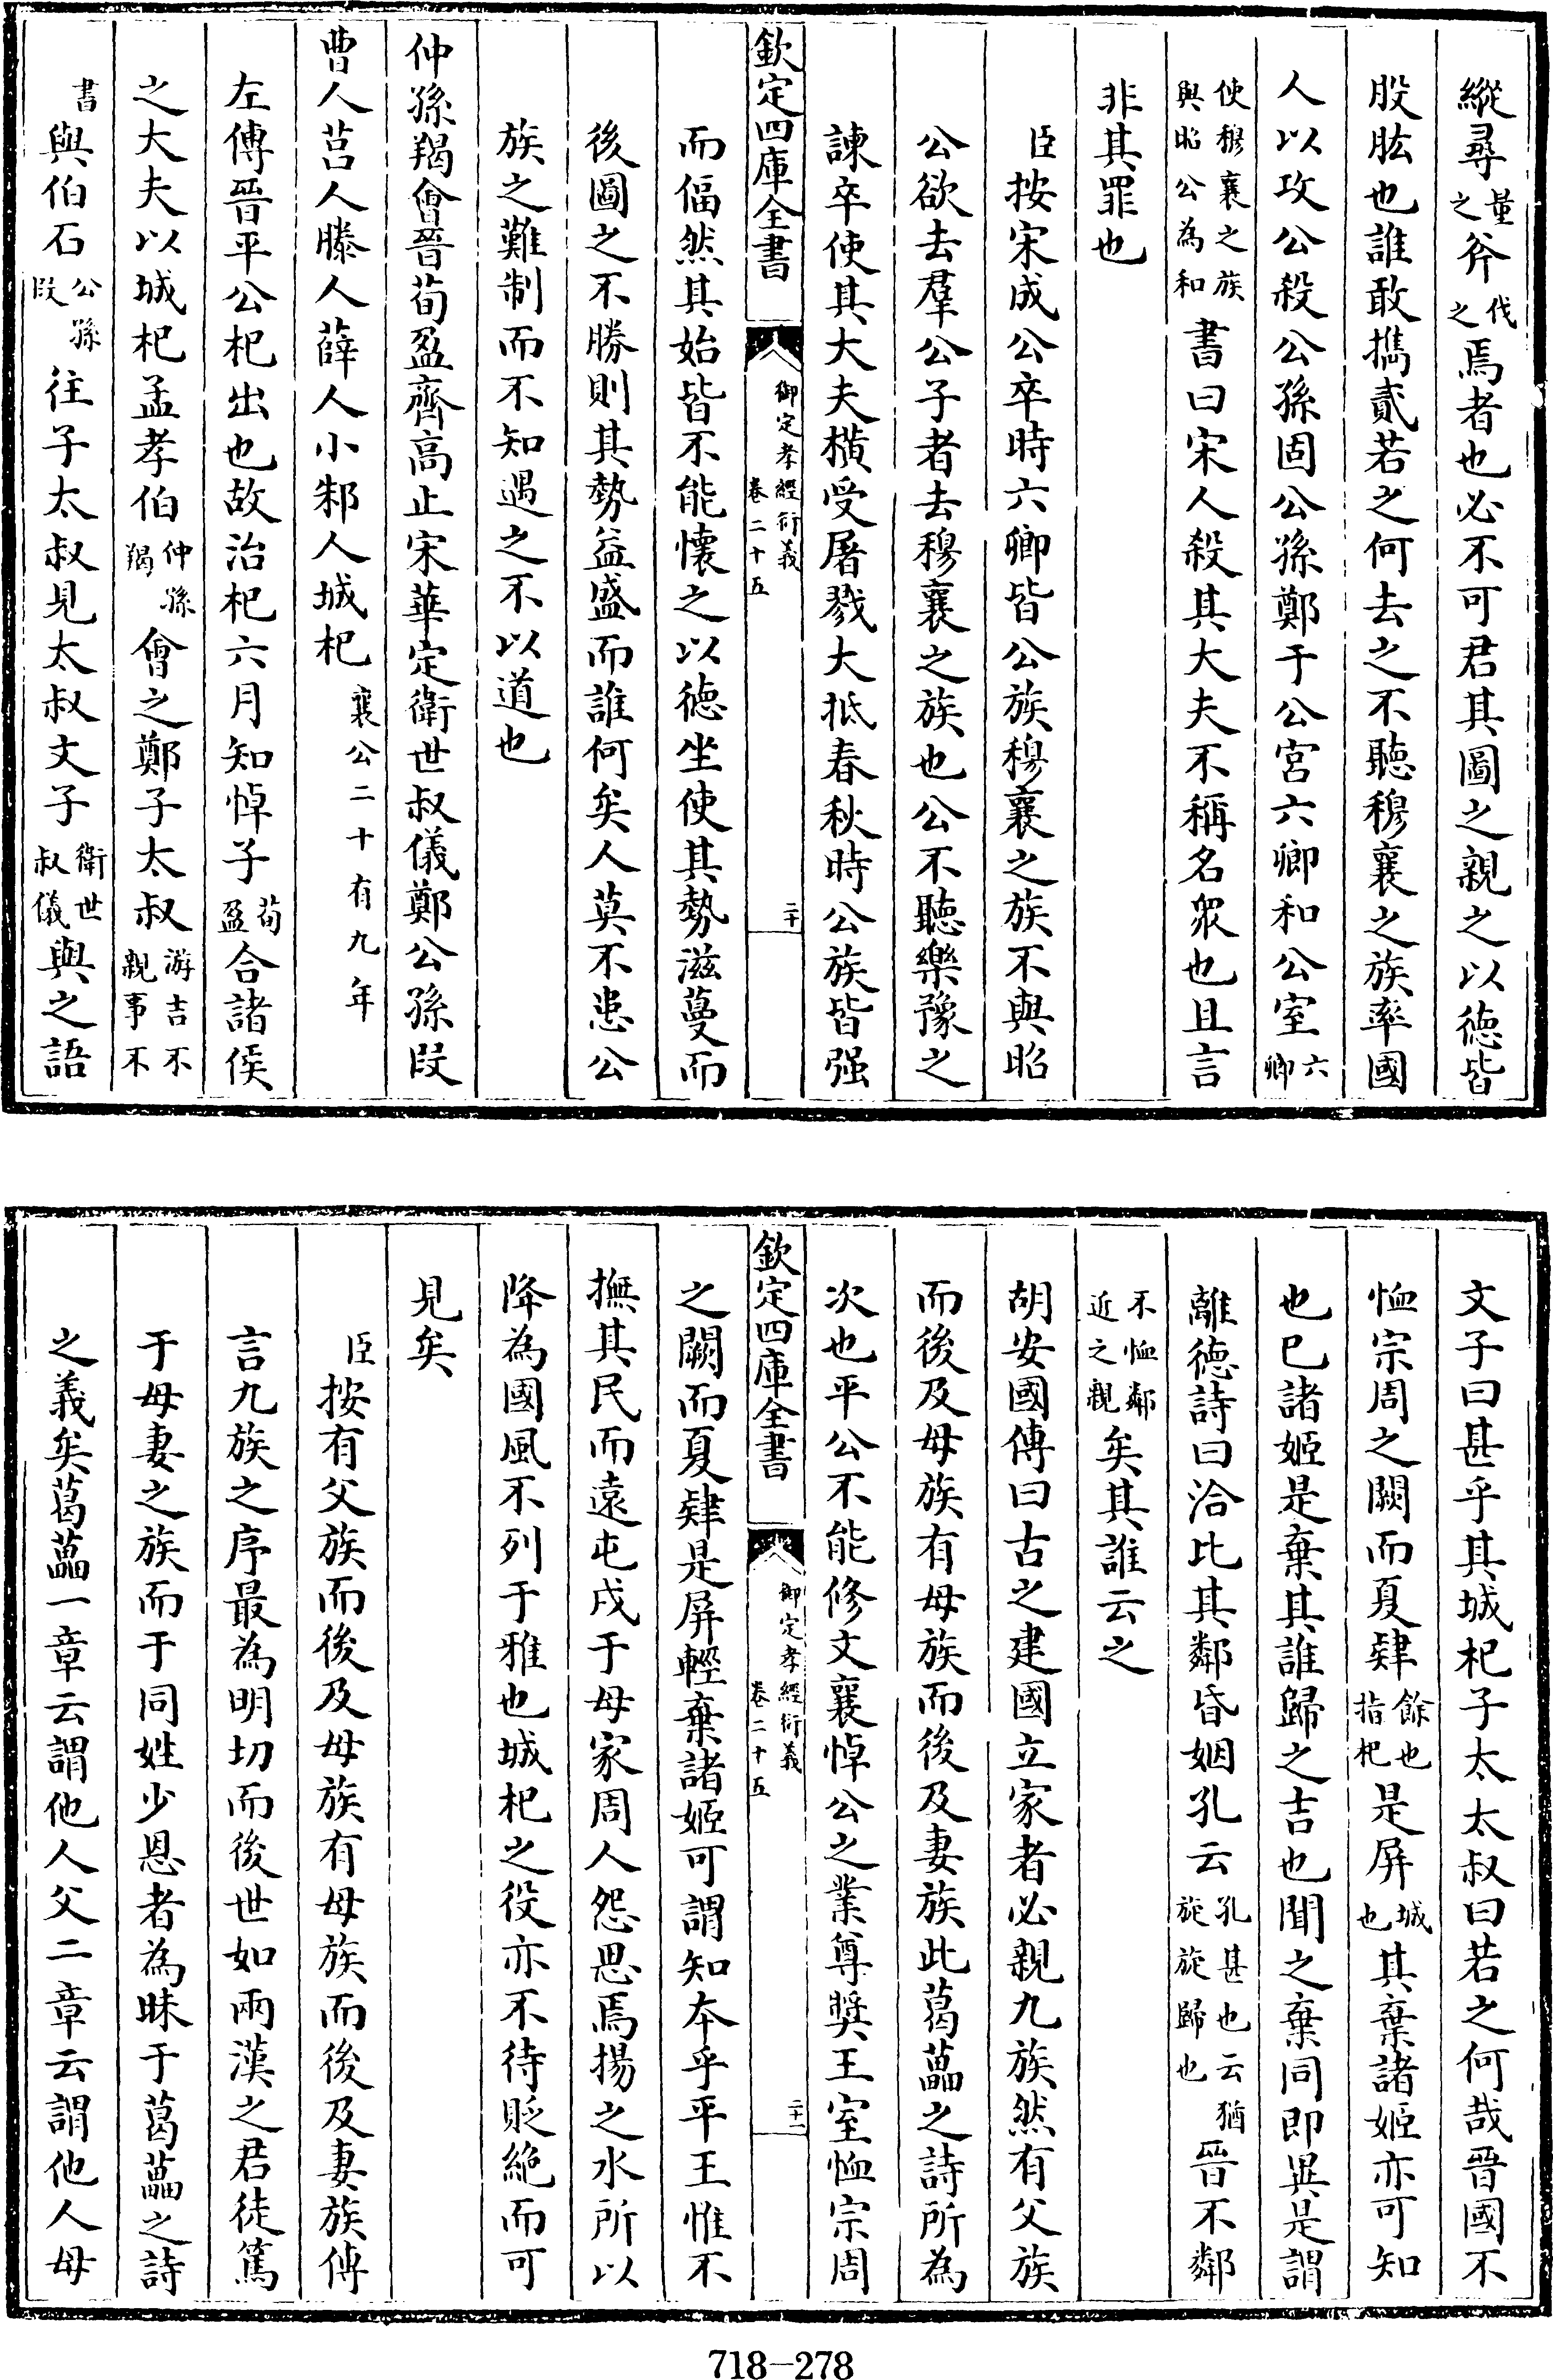 縱尋量之斧伐之焉者也必不可君其圖之親之以德皆
股肱也誰敢攜貳若之何去之不聽穆襄之族率國
人以攻公殺公孫固公孫鄭于公宮六卿和公室六卿
使穆襄之族與昭公為和書曰宋人殺其大夫不稱名衆也且言
非其罪也
臣按宋成公卒時六卿皆公族穆襄之族不與昭
公欲去羣公子者去穆襄之族也公不聽樂豫之
諫卒使其大夫橫受屠戮大抵春秋時公族皆强
欽定四庫全書
御定孝經衍義
卷二十五
二十
而偪然其始皆不能懷之以德坐使其勢滋蔓而
後圖之不勝則其勢益盛而誰何矣人莫不患公
族之難制而不知遇之不以道也
仲孫羯會晉荀盈齊高止宋華定衛世叔儀鄭公孫段
曹人莒人滕人薛人小邾人城杞襄公二十有九年
左傳晉平公杞出也故治杞六月知悼子荀盈合諸侯
之大夫以城杞孟孝伯仲孫羯會之鄭子太叔游吉不親事不
書與伯石公孫段往子太叔見太叔文子衛世叔儀與之語
文子曰甚乎其城杞子太太叔曰若之何哉晉國不
恤宗周之闕而夏肄餘也指杞是屏城也其棄諸姬亦可知
也已諸姬是棄其誰歸之吉也聞之棄同即異是謂
離德詩曰洽比其鄰昏姻孔云孔甚也云猶旋旋歸也晉不鄰
不恤鄰近之親矣其誰云之
胡安國傳曰古之建國立家者必親九族然有父族
而後及母族有母族而後及妻族此葛藟之詩所為
次也平公不能修文襄悼公之業尊奬王室恤宗周
欽定四庫全書
御定孝經衍義
卷二十五
二十一
之闕而夏肄是屏輕棄諸姬可謂知本乎平王惟不
撫其民而遠屯戍于母家周人怨思焉揚之水所以
降為國風不列于雅也城杞之役亦不待貶絕而可
見矣
臣按有父族而後及母族有母族而後及妻族傳
言九族之序最為明切而後世如兩漢之君徒篤
于母妻之族而于同姓少恩者為昧于葛藟之詩
之義矣葛藟一章云謂他人父二章云謂他人母
718-278